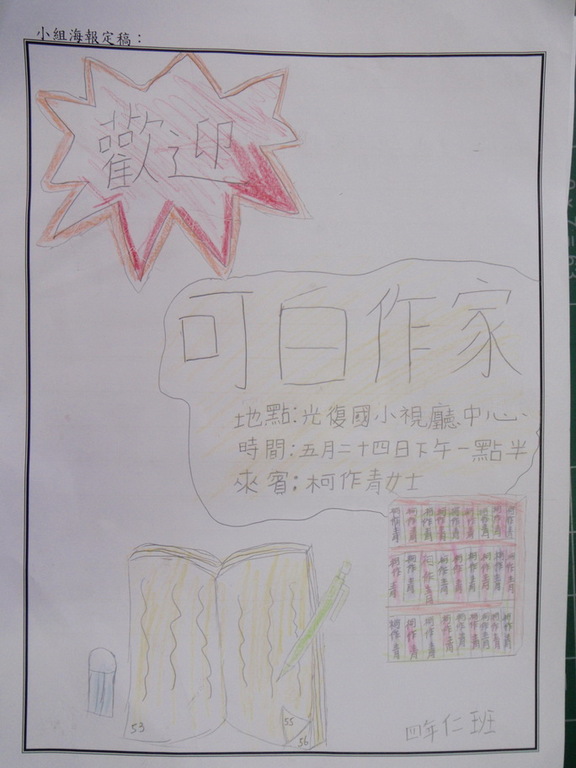 小組海報定稿：
歡迎
可白作家
地點：光復國小視廳中心、
時間：五月二十四日下午一點半
來賓：柯作青女士
柯作青 柯作青 柯作青 柯作青 柯作青 柯作青 柯作青 柯作青 柯作青
柯作青 柯作青 柯作青 柯作青 柯作青 柯作青 柯作青 柯作青 柯作青
柯作青 柯作青 柯作青 柯作青 柯作青 柯作青 柯作青 柯作青 柯作青
53
55
56
四年仁班